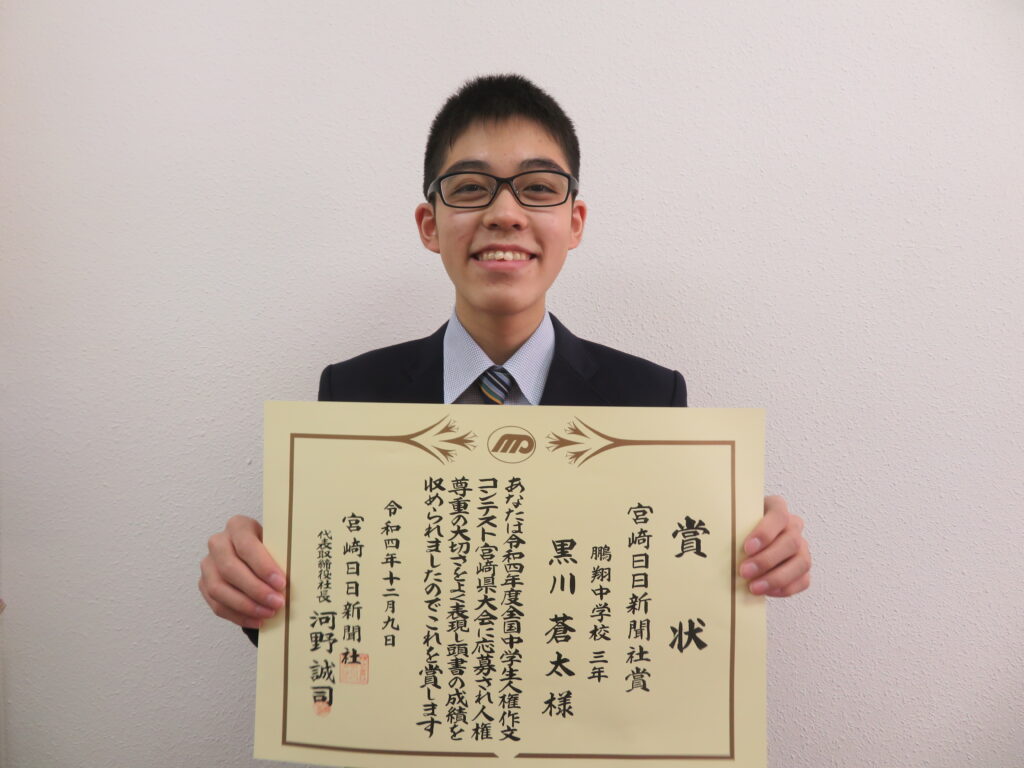 賞状
宮崎日日新聞社賞
鵬翔中学校 三年
黒川 蒼太 様
あなたは令和四年度全国中学生人権作文
コンテスト宮崎県大会に応募され人権
尊重の大切さをよく表現し頭書の成績を
収められましたのでこれを賞します
令和四年十二月九日
宮崎日日新聞社
代表取締役社長 河野誠司